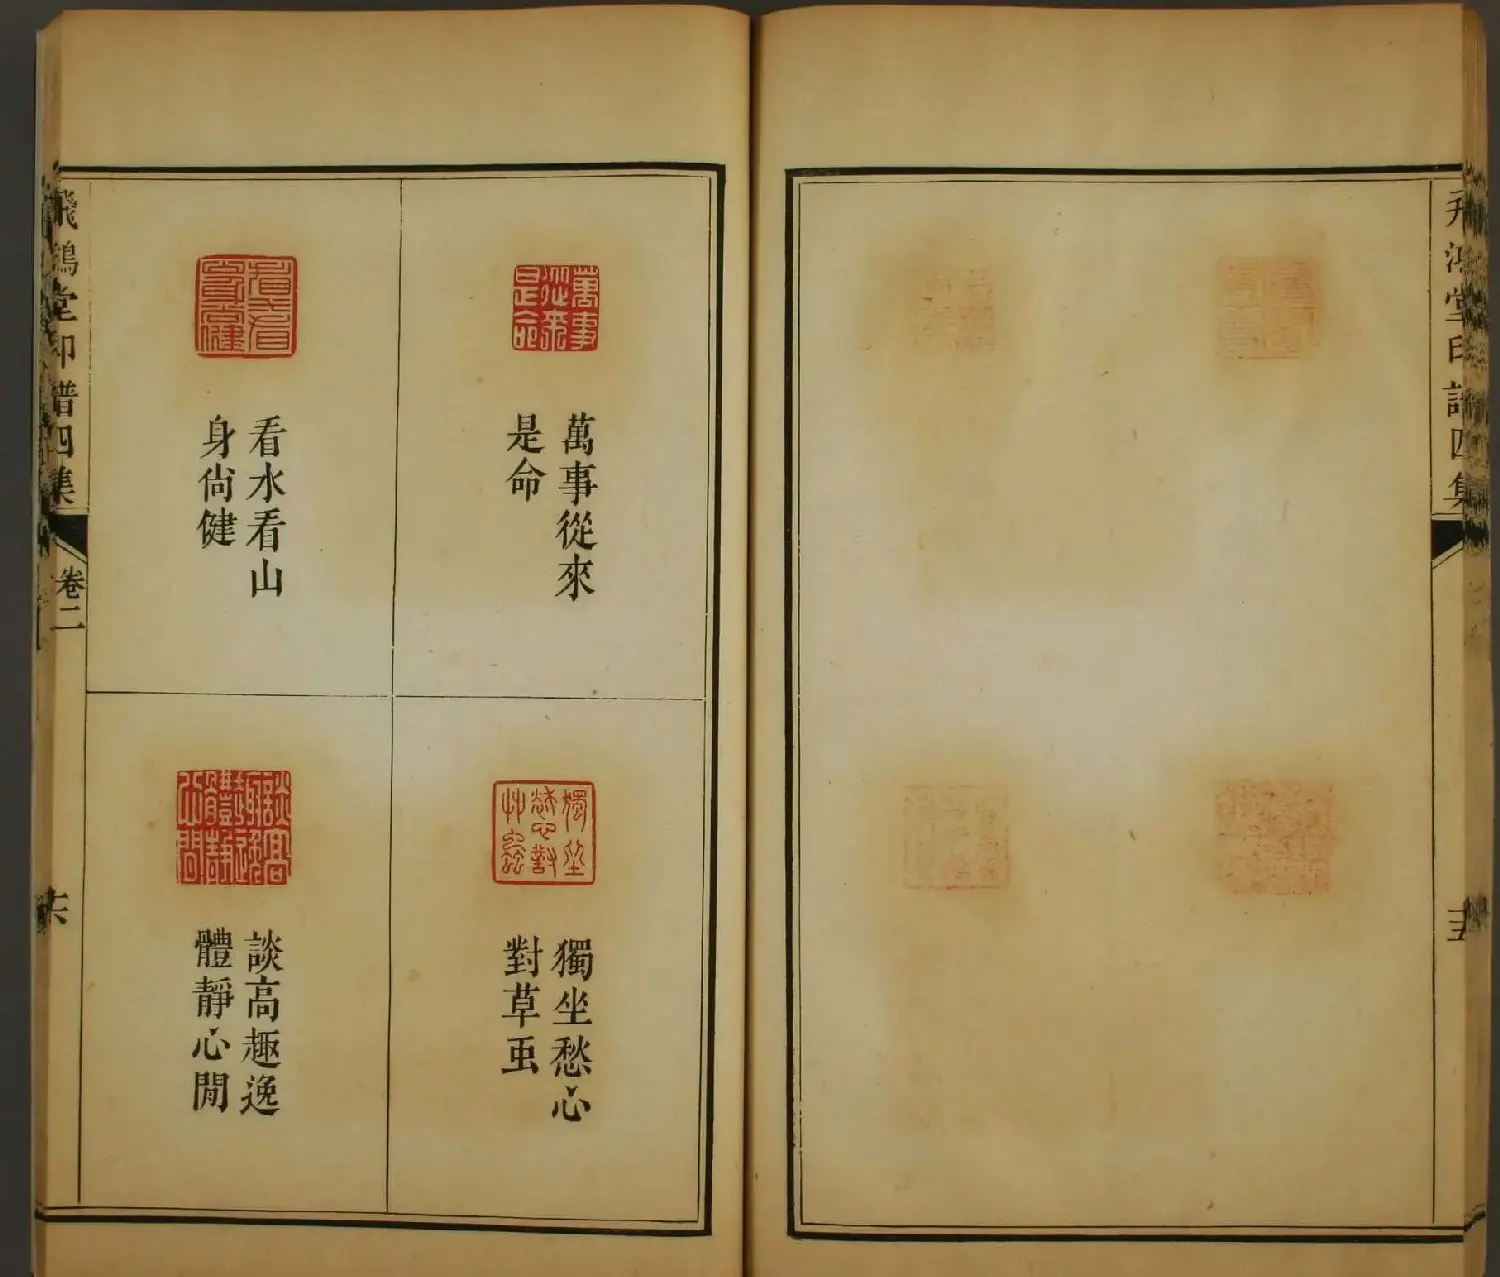 飛鴻堂印譜四集
十五
萬事從來
是命
獨坐愁心
對草虫
看水看山
身尙健
談高趣逸
體靜心閒
飛鴻堂印譜四集
卷二
十六